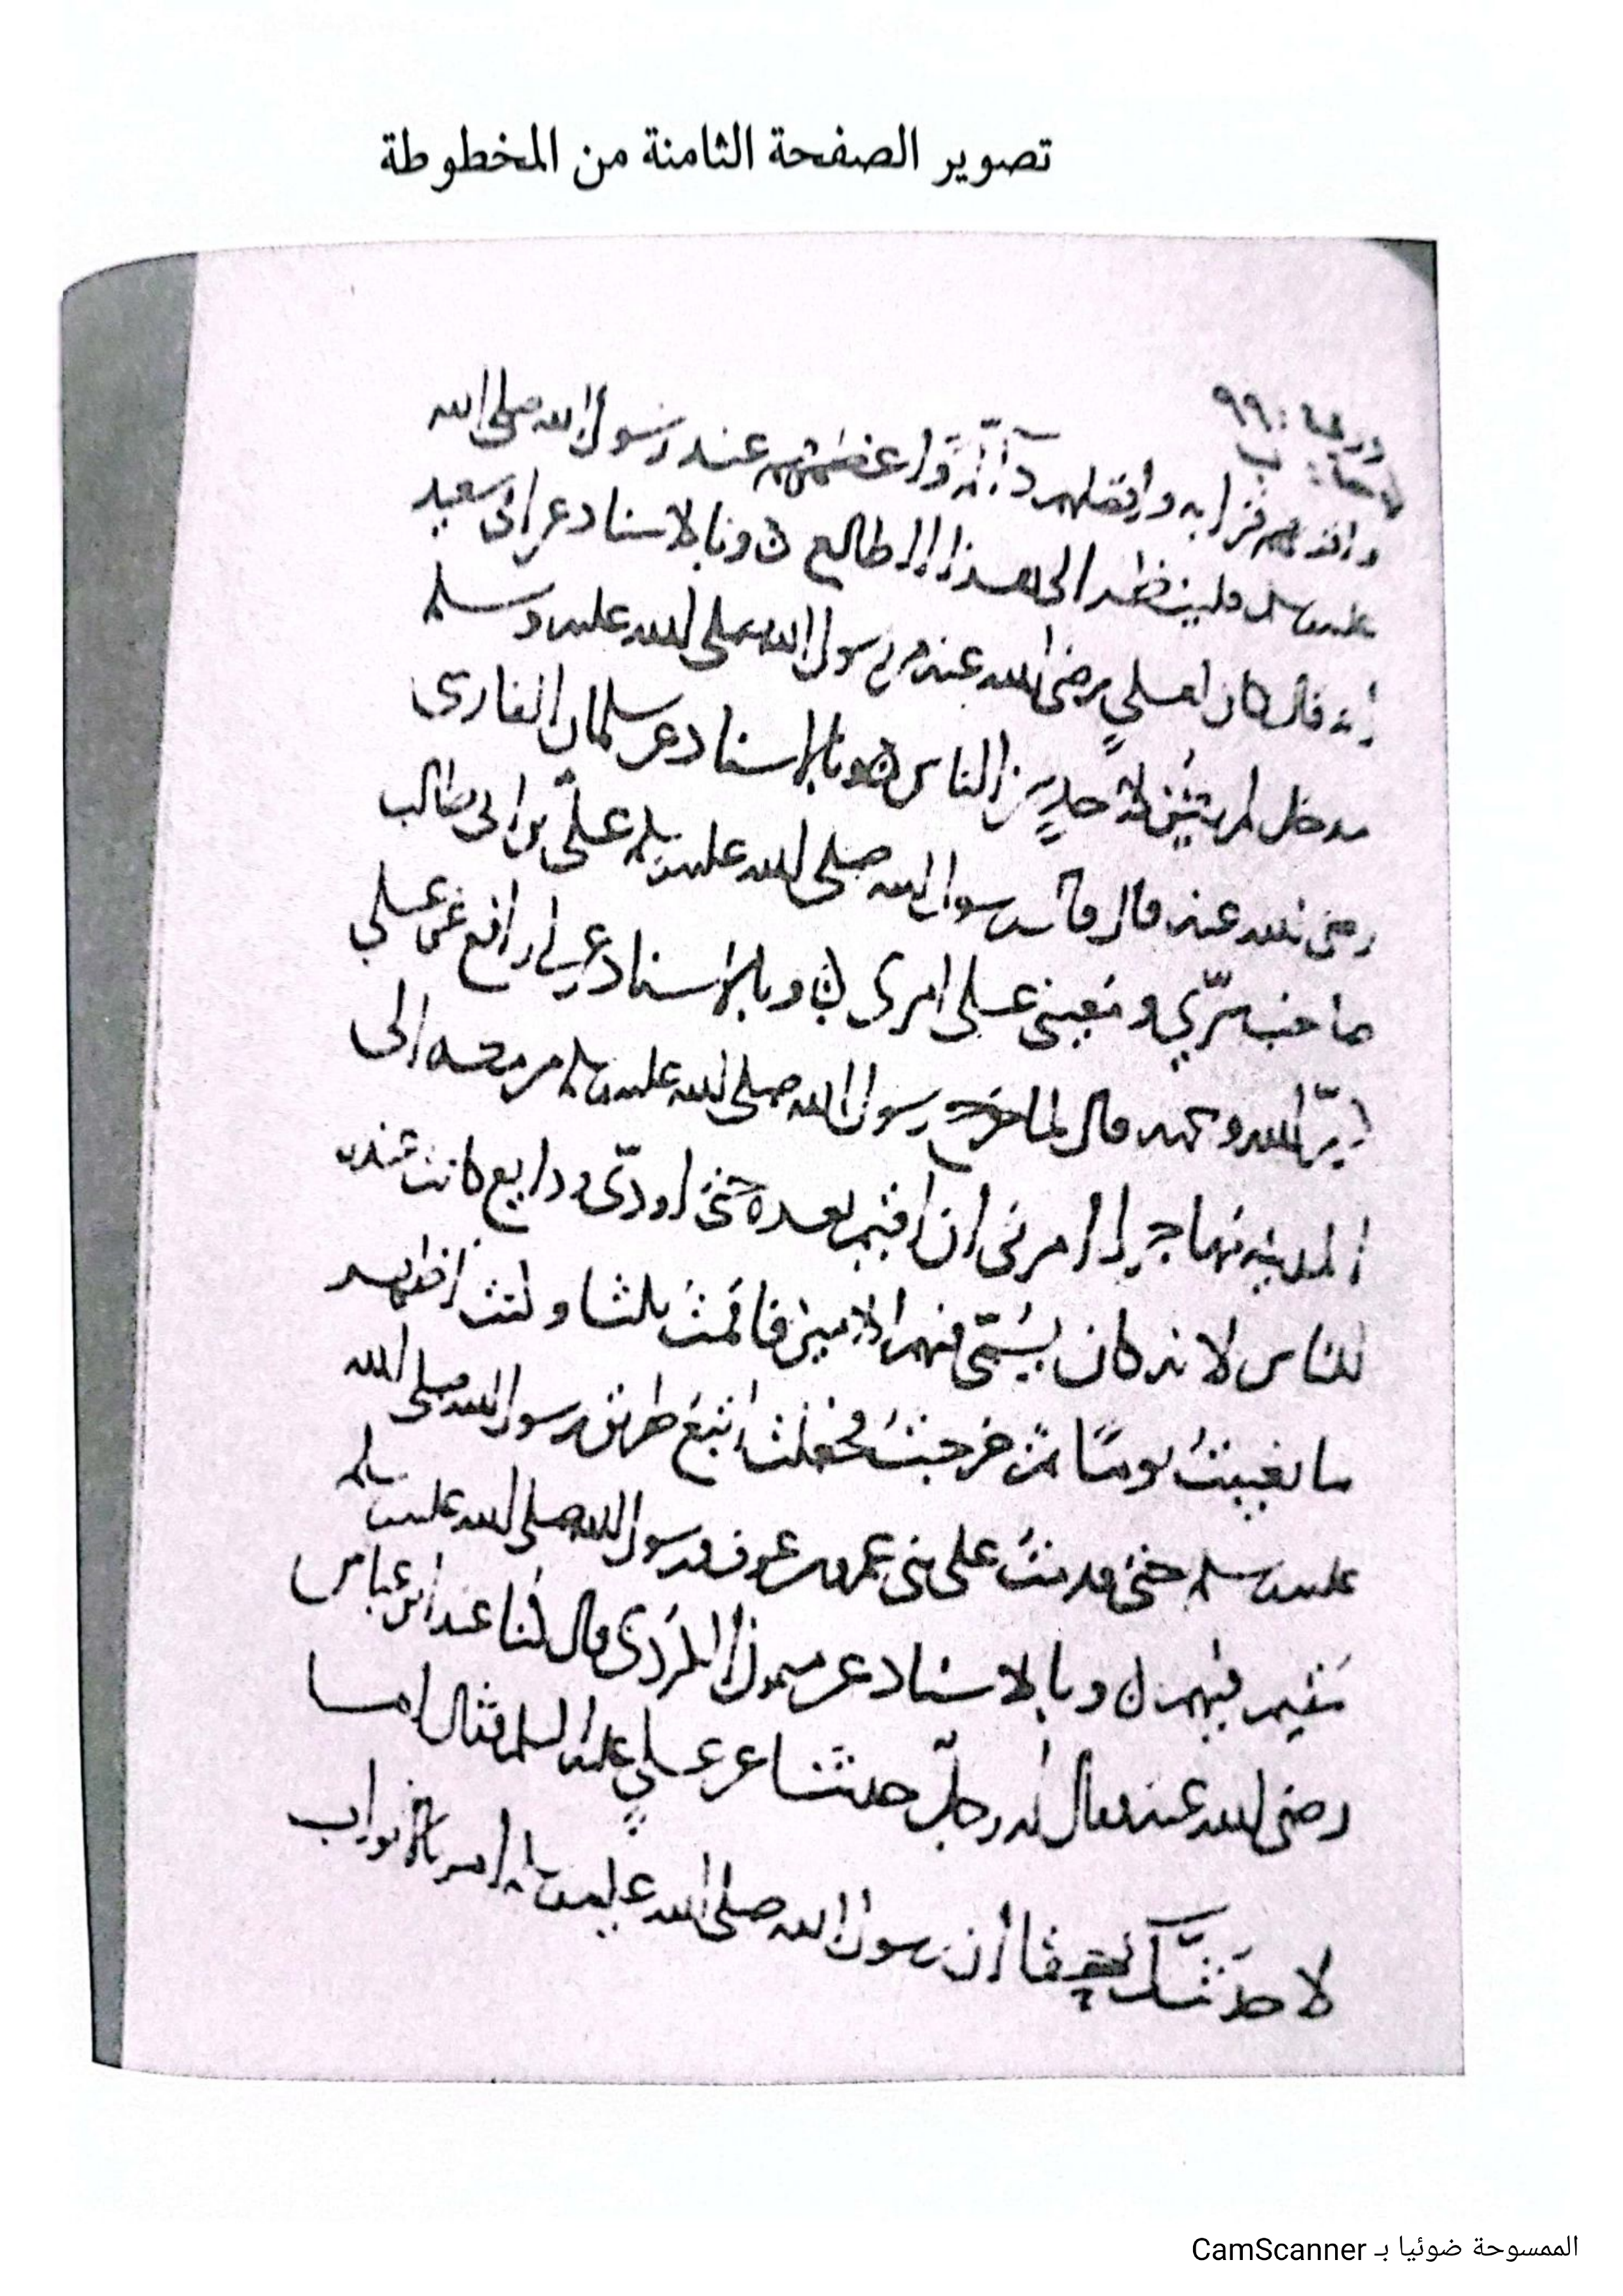 تصوير الصفحة الثامنة من المخطوطة
ورقة : ٩٩
ب
قرابه وافضلهم دالّةً واعظمهم عند رسول الله صلى الله
عليه وسلم فلينظر الى هذا الطالع ن وبالاسناد عن ابى سعيد
انه قال كان لعليٍ رضى الله عنه من رسول الله صلى الله عليه وسلم
مدخل لم يكن لاحدٍ من الناس ن وبالاسناد عن سلمان الفارسى
رضى الله عنه قال قال رسول الله صلى الله عليه وسلم علىّ بن ابى طالب
صاحب سرّي و على امرى ن وبالاسناد عن ابى رافع عن علي
كرّم الله وجهه قال لما خرج رسول الله صلى الله عليه وسلم من مكه الى
المدينه مهاجرا امرنى ان اقيم بعده حتى اودّى ودايع كانت عنده
للناس لانه كان يسمّى فيهم الامين فاقمت ثلثا وكنت اظهر
ما تغيبتُ يومًا ثمّ خرجتُ فجعلت اتبع طريق رسول الله صلى الله
عليه وسلم حتى قدمتُ على بنى عمرو بن عوف ورسول الله صلى الله عليه وسلم
مقيم فيهم ن وبالاسناد عن ميمون قال كنا عند ابن عباس
رضى الله عنه فقال له رجلٌ حدثنا عن عليٍ عليه السلم فقال اما
لاحدثنّك حقا ان رسول الله صلى الله عليه وسلم امر بالابواب
الممسوحة ضوئيا بـ CamScanner